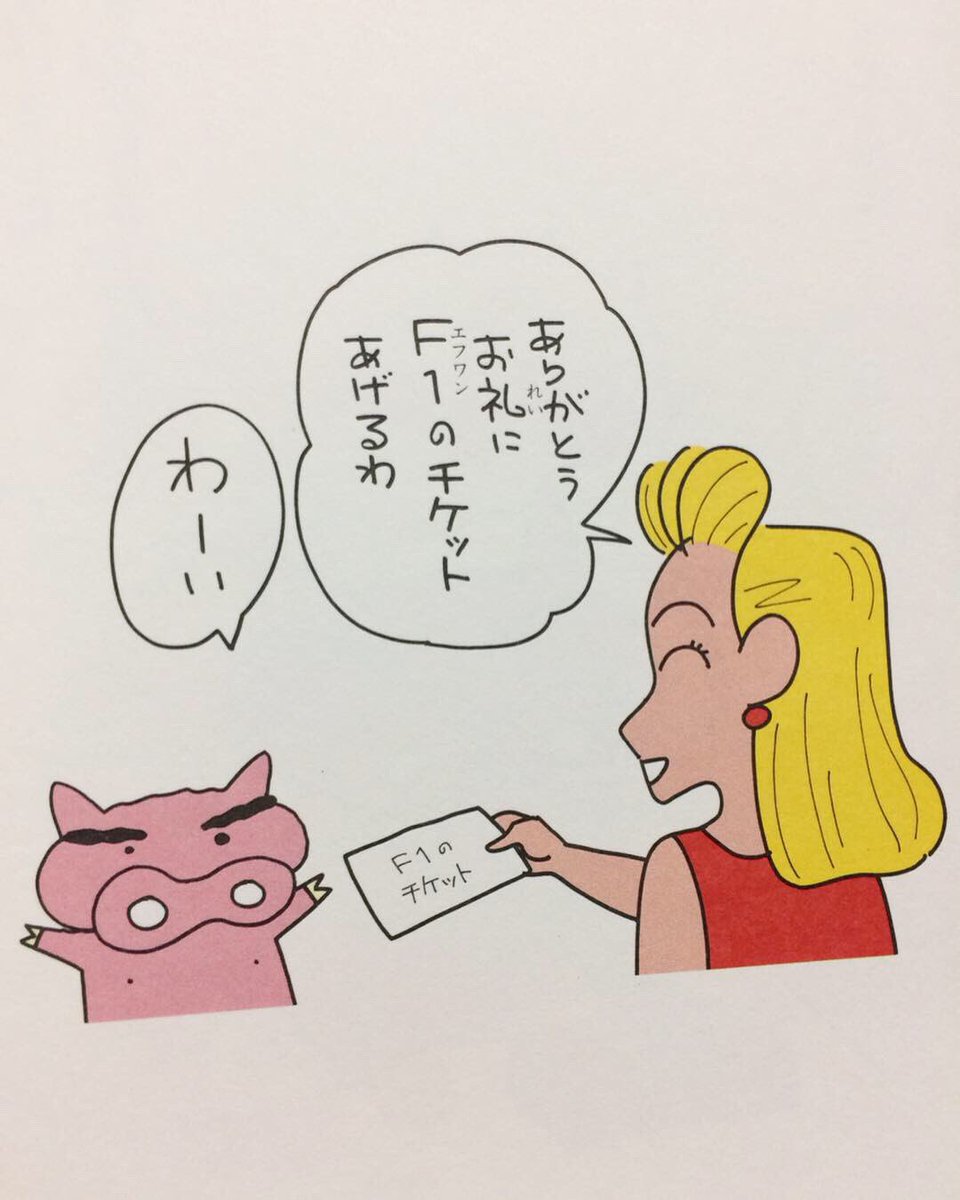 ありがとう
お礼に
F1のチケット
あげるわ
れい
エフワン
わーい
F1の
チケット